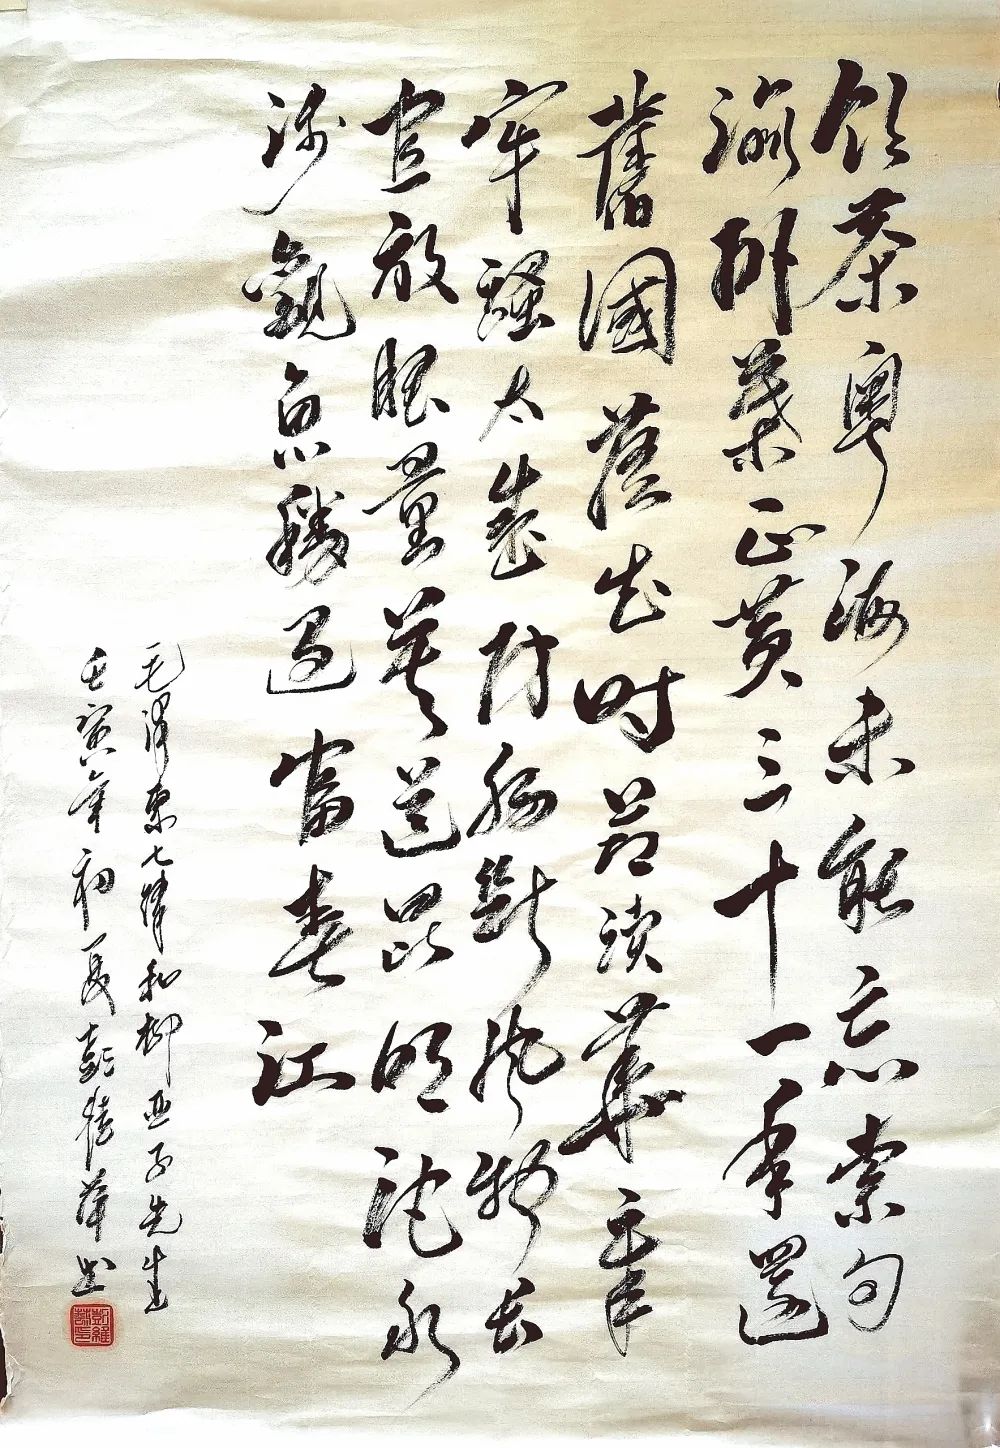 饮茶粤海未能忘索句
渝州葉正黄三十一年還
舊國落花时节读華章
牢騷太盛防腸斷风物长
宜放眼量莫道昆明池水
浅觀鱼勝过富春江
毛泽东七律和柳亚子先生
壬寅年初夏彭维书